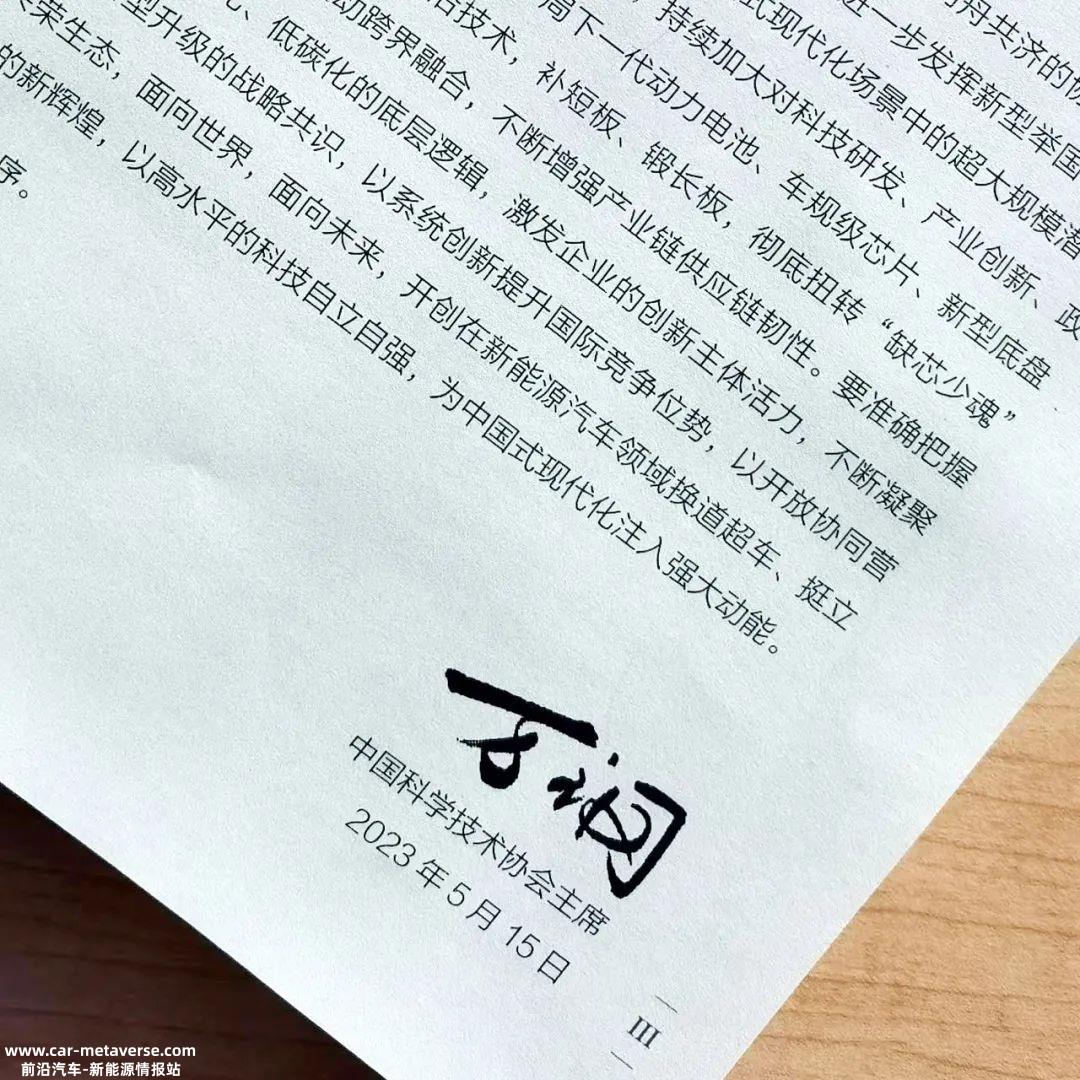 舟共济的
进一步发挥新型举国
式现代化场景中的超大规模潜
，持续加大对科技研发、产业创新、政
局下一代动力电池、车规级芯片、新型底盘
技术，补短板、锻长板，彻底扭转“缺芯少魂”
动跨界融合，不断增强产业链供应链韧性。要准确把握
、低碳化的底层逻辑，激发企业的创新主体活力，不断凝聚
型升级的战略共识，以系统创新提升国际竞争位势，以开放协同营
荣生态，面向世界，面向未来，开创在新能源汽车领域换道超车、挺立
的新辉煌，以高水平的科技自立自强，为中国式现代化注入强大动能。
序。
万钢
中国科学技术协会主席
2023年5月15日
III
www.car-metaverse.com
前沿汽车-新能源情报站